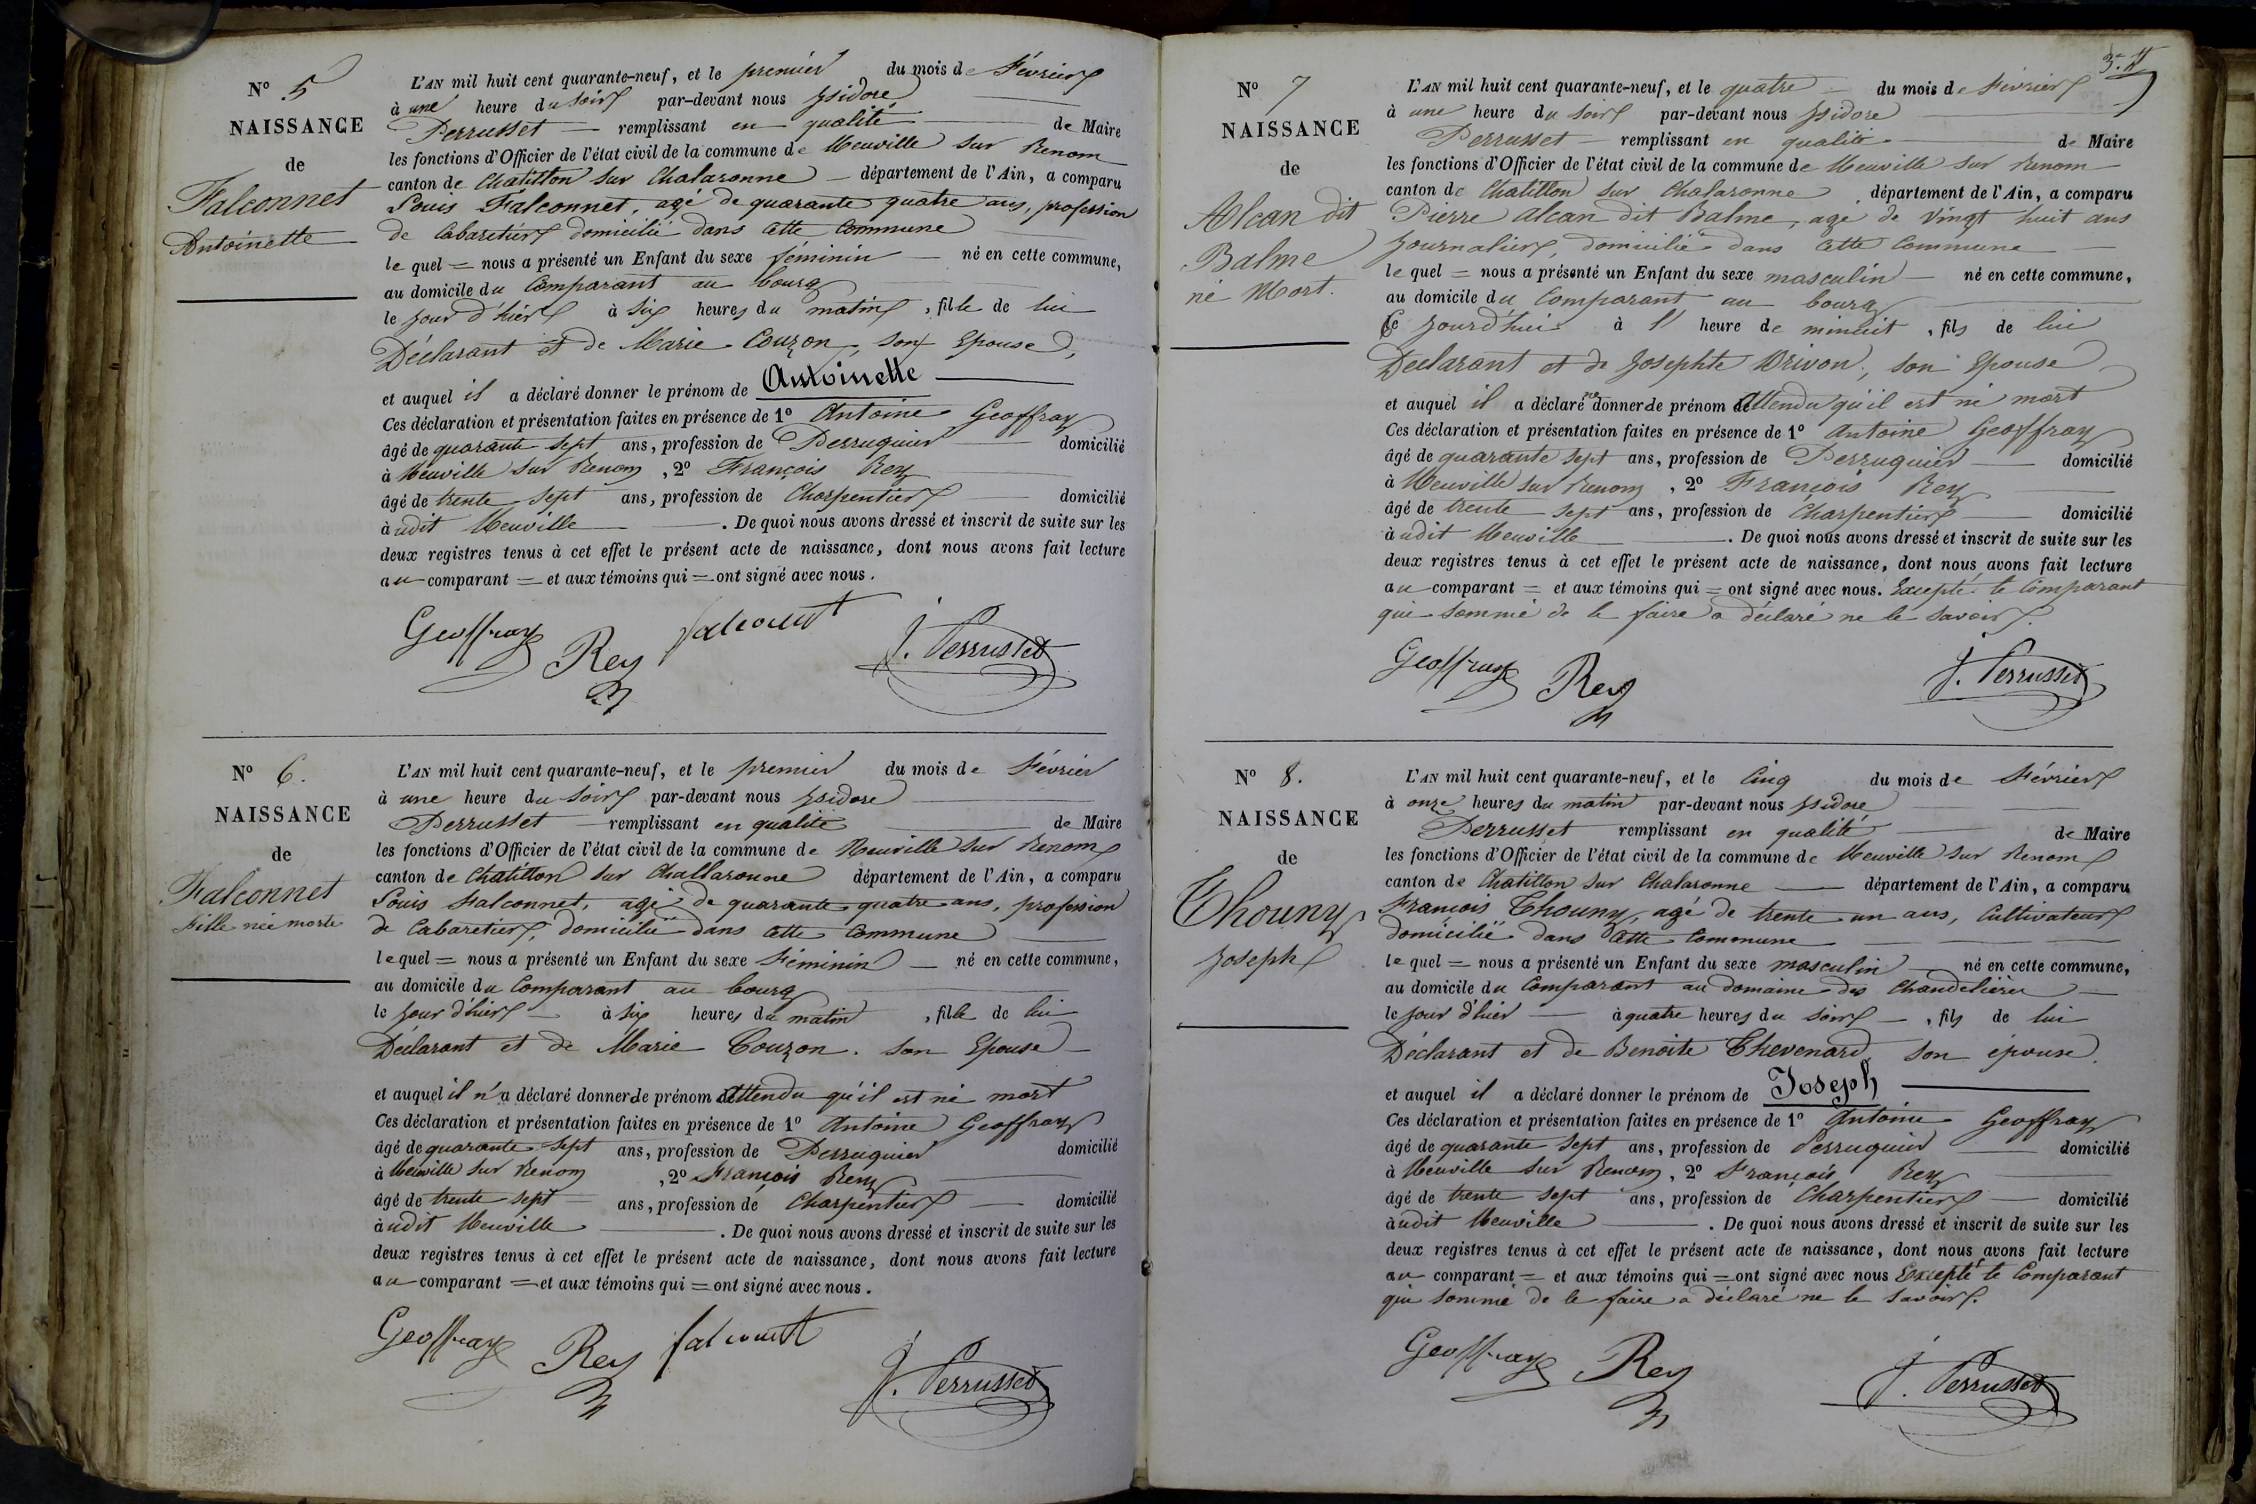 N° 5
NAISSANCE
de
Falconnet
Antoinette
L'AN mil huit cent quarante-neuf, et le premier du mois de Février
à une heure du soir par-devant nous Isidore
Perrusset remplissant en qualité de Maire
les fonctions d'Officier de l'état civil de la commune de Neuville sur Renom
canton de Chatillon sur Chalaronne département de l'Ain, a comparu
Louis Falconnet, agé de quarante quatre ans, profession
de Cabaretier domicilié dans cette Commune
le quel = nous a présenté un Enfant du sexe féminin né en cette commune,
au domicile du Comparant au bourg
le jour d'hier à six heures du matin, fille de lui
Déclarant et de Marie Couzon, son Epouse,
et auquel il a déclaré donner le prénom de Antoinette
Ces déclaration et présentation faites en présence de 1° Antoine Geoffray
âgé de quarante sept ans, profession de Perruquier domicilié
à Neuville sur Renom, 2° François Rey
âgé de trente sept ans, profession de Charpentier domicilié
à udit Neuville. De quoi nous avons dressé et inscrit de suite sur les
deux registres tenus à cet effet le présent acte de naissance, dont nous avons fait lecture
au comparant = et aux témoins qui = ont signé avec nous.
Geoffray Rey falconnet J. Perrusset
N° 6.
NAISSANCE
de
Falconnet
fille née morte
L'AN mil huit cent quarante-neuf, et le premier du mois de Février
à une heure du soir par-devant nous Isidore
Perrusset remplissant en qualité de Maire
les fonctions d'Officier de l'état civil de la commune de Neuville sur Renom
canton de Chatillon sur Challaronne département de l'Ain, a comparu
Louis Falconnet, agé de quarante quatre ans, profession
de Cabaretier, domicilié dans cette Commune
le quel = nous a présenté un Enfant du sexe Féminin né en cette commune,
au domicile du Comparant au bourg
le jour d'hier à six heures du matin, fille de lui
Déclarant et de Marie Couzon. son Epouse
et auquel il n'a déclaré donner de prénom attendu qu'il est né mort
Ces déclaration et présentation faites en présence de 1° Antoine Geoffray
âgé de quarante = sept ans, profession de Perruquier domicilié
à Neuville sur Renom, 2° François Rey
âgé de trente sept ans, profession de Charpentier domicilié
à udit Neuville. De quoi nous avons dressé et inscrit de suite sur les
deux registres tenus à cet effet le présent acte de naissance, dont nous avons fait lecture
au comparant = et aux témoins qui = ont signé avec nous.
Geoffray Rey falconnet J. Perrusset
N° 7
NAISSANCE
de
Alcan dit
Balme
né Mort.
L'AN mil huit cent quarante-neuf, et le quatre du mois de Février
à une heure du soir par-devant nous Isidore
Perrusset remplissant en qualité de Maire
les fonctions d'Officier de l'état civil de la commune de Neuville sur Renom
canton de Chatillon sur Chalaronne, département de l'Ain, a comparu
Pierre Alcan dit Balme, agé de vingt huit ans
Journalier, domicilié dans cette Commune
le quel = nous a présenté un Enfant du sexe masculin né en cette commune,
au domicile du Comparant au bourg
Ce jourd'hui à l' heure de minuit, fils de lui
Déclarant et de Josephte Drivon, son Epouse
et auquel il a déclaré ne donner de prénom attendu qu'il est né mort
Ces déclaration et présentation faites en présence de 1° Antoine Geoffray
âgé de quarante sept ans, profession de Perruquier domicilié
à Neuville sur Renom, 2° François Rey
âgé de trente sept ans, profession de Charpentier domicilié
à udit Neuville. De quoi nous avons dressé et inscrit de suite sur les
deux registres tenus à cet effet le présent acte de naissance, dont nous avons fait lecture
au comparant = et aux témoins qui = ont signé avec nous. Excepté le Comparant
qui sommé de le faire a déclaré ne le savoir.
Geoffray Rey J. Perrusset
N° 8.
NAISSANCE
de
Thouny
Joseph
L'AN mil huit cent quarante-neuf, et le Cinq du mois de Février
à onze heures du matin par-devant nous Isidore
Perrusset remplissant en qualité de Maire
les fonctions d'Officier de l'état civil de la commune de Neuville sur Renom
canton de Chatillon sur Chalaronne département de l'Ain, a comparu
François Thouny, agé de trente un ans, Cultivateur
domicilié dans cette Commune
le quel = nous a présenté un Enfant du sexe masculin né en cette commune,
au domicile du Comparant au domaine des Chandelières
le jour d'hier à quatre heures du soir, fils de lui
Déclarant et de Benoite Thevenard, son épouse.
et auquel il a déclaré donner le prénom de Joseph
Ces déclaration et présentation faites en présence de 1° Antoine Geoffray
âgé de quarante sept ans, profession de Perruquier domicilié
à Neuville sur Renom, 2° François Rey
âgé de trente sept ans, profession de Charpentier domicilié
à udit Neuville. De quoi nous avons dressé et inscrit de suite sur les
deux registres tenus à cet effet le présent acte de naissance, dont nous avons fait lecture
au comparant = et aux témoins qui = ont signé avec nous Excepté le Comparant
qui sommé de le faire a déclaré ne le savoir.
Geoffray Rey J. Perrusset